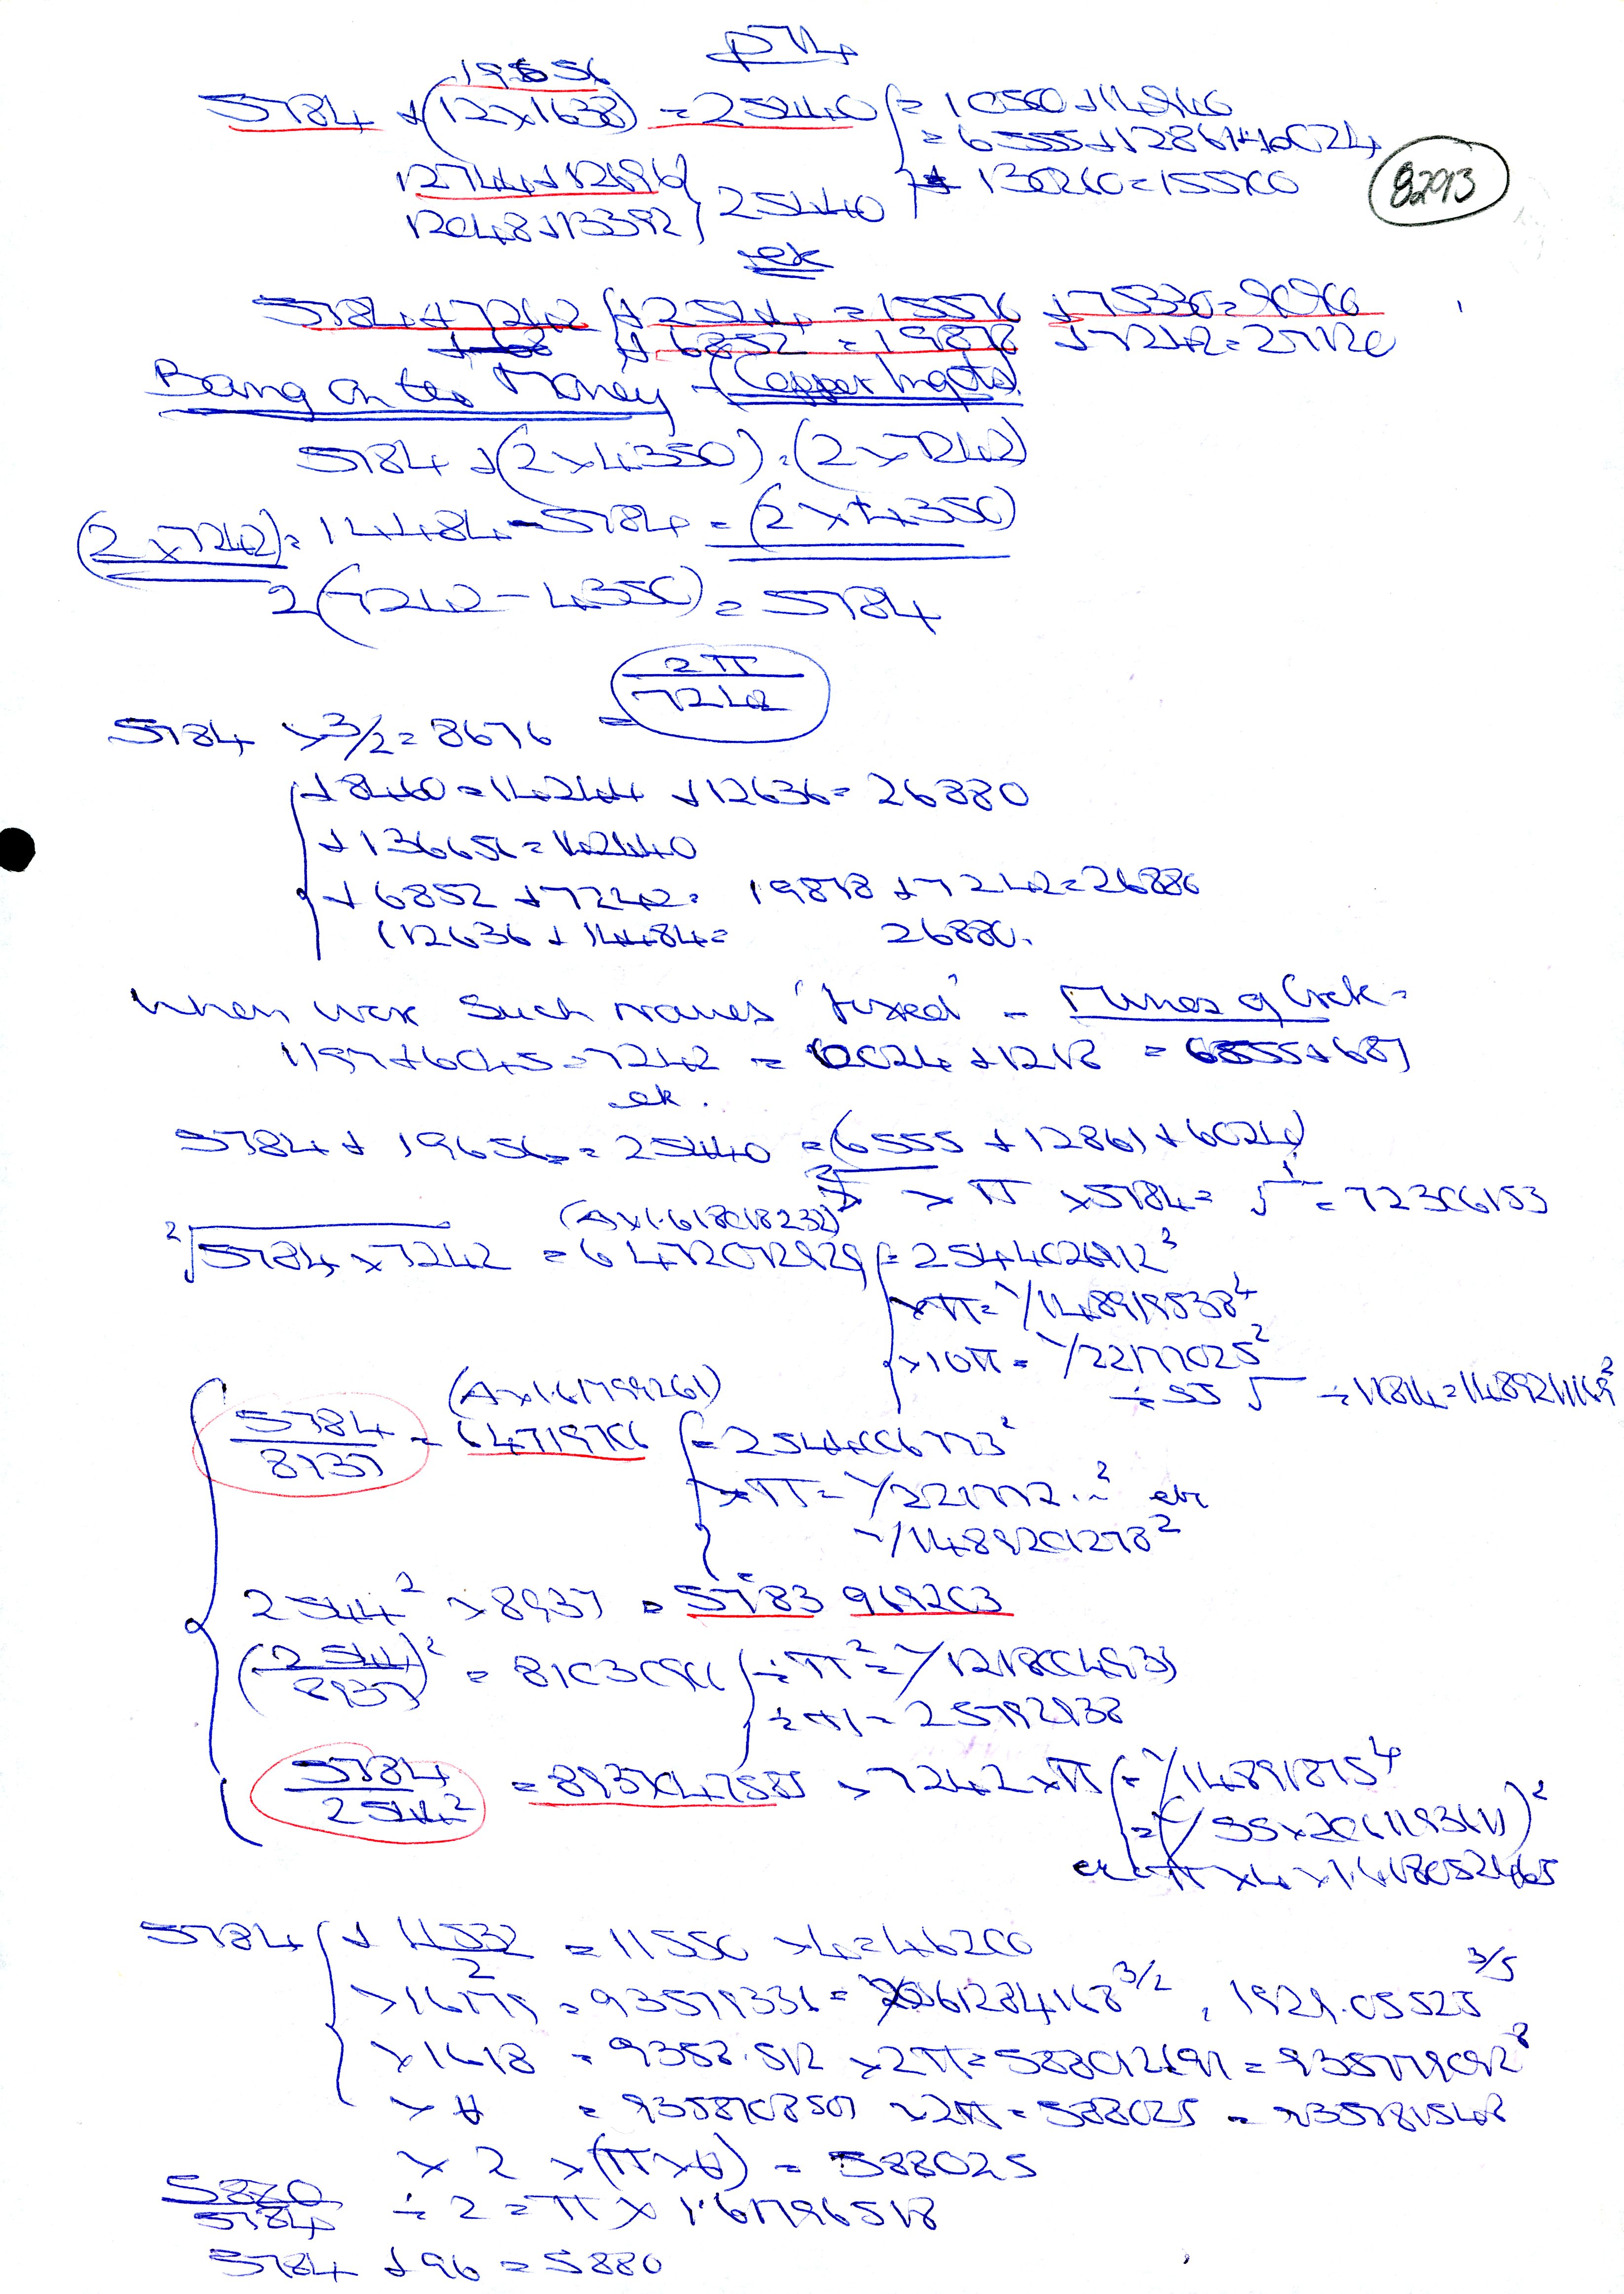 19656
5784 + (12x1638) = 25440 { = 10500 + 14940
= 6555 + 12861 + 6024
12744 + 12696 } 25440
12048 + 13392
82913
5784 + 7242 { + 2544 = 15570 + 75330 = 90900
+ 6852 = 19878 + 7242 = 27120
Being on the Money - (Copper Ingots)
5784 + (2x4350) = (2x7242)
(2x7242) = 14484 - 5784 = (2x4350)
2(7242 - 4350) = 5784
2π
7242
5784 x 3/2 = 8676 =
+ 8460 = 14244 + 12636 = 26880
+ 136656 = 142440
+ 6852 + 7242 = 19878 + 7242 = 26880
(12636 + 14484 = 26880.
When was such names 'fixed' -
1197 + 6045 = 7242 = 6024 + 1218 = 6555 + 687
5784 + 19656 = 25440 = (6555 + 12861 + 6024)
x π x 5784 = √ = 72306153
(A x 1.618018232)
2√5784 x 7242 = 6472072929 { = 2544026912²
x π = 1/148919538⁴
x 10π = 1/22177025²
÷ 55 √ ÷ 11814 = 1489211169²
(A x 1.61799261)
5784
8937
= 64719706 { = 2544006773²
x π = 1/221772..² etc
1/1489201278²
2544² x 8937 = 5783 969203
(2544
8937)² = 81030900 { ÷ π² = 1/121800493
÷ π = 25792938
5784
2544²
= 8937047585 x 7242 x π { = 1/14891875⁴
= (1/55x2061193611)²
or π x 4 x 1.618052465
5784 { + 11532
2
= 11550 x 4 = 46200
x 16179 = 93579336 = 2061284168 3/2, 1929.05525 3/5
x 1618 = 9358.512 x 2π = 588012691 = 935779092⁸
= 9358708507 x 2π = 588025 = 935781548
x 2 x (π x θ) = 588025
5880
5784
÷ 2 = π x 1.61796518
5784 + 96 = 5880